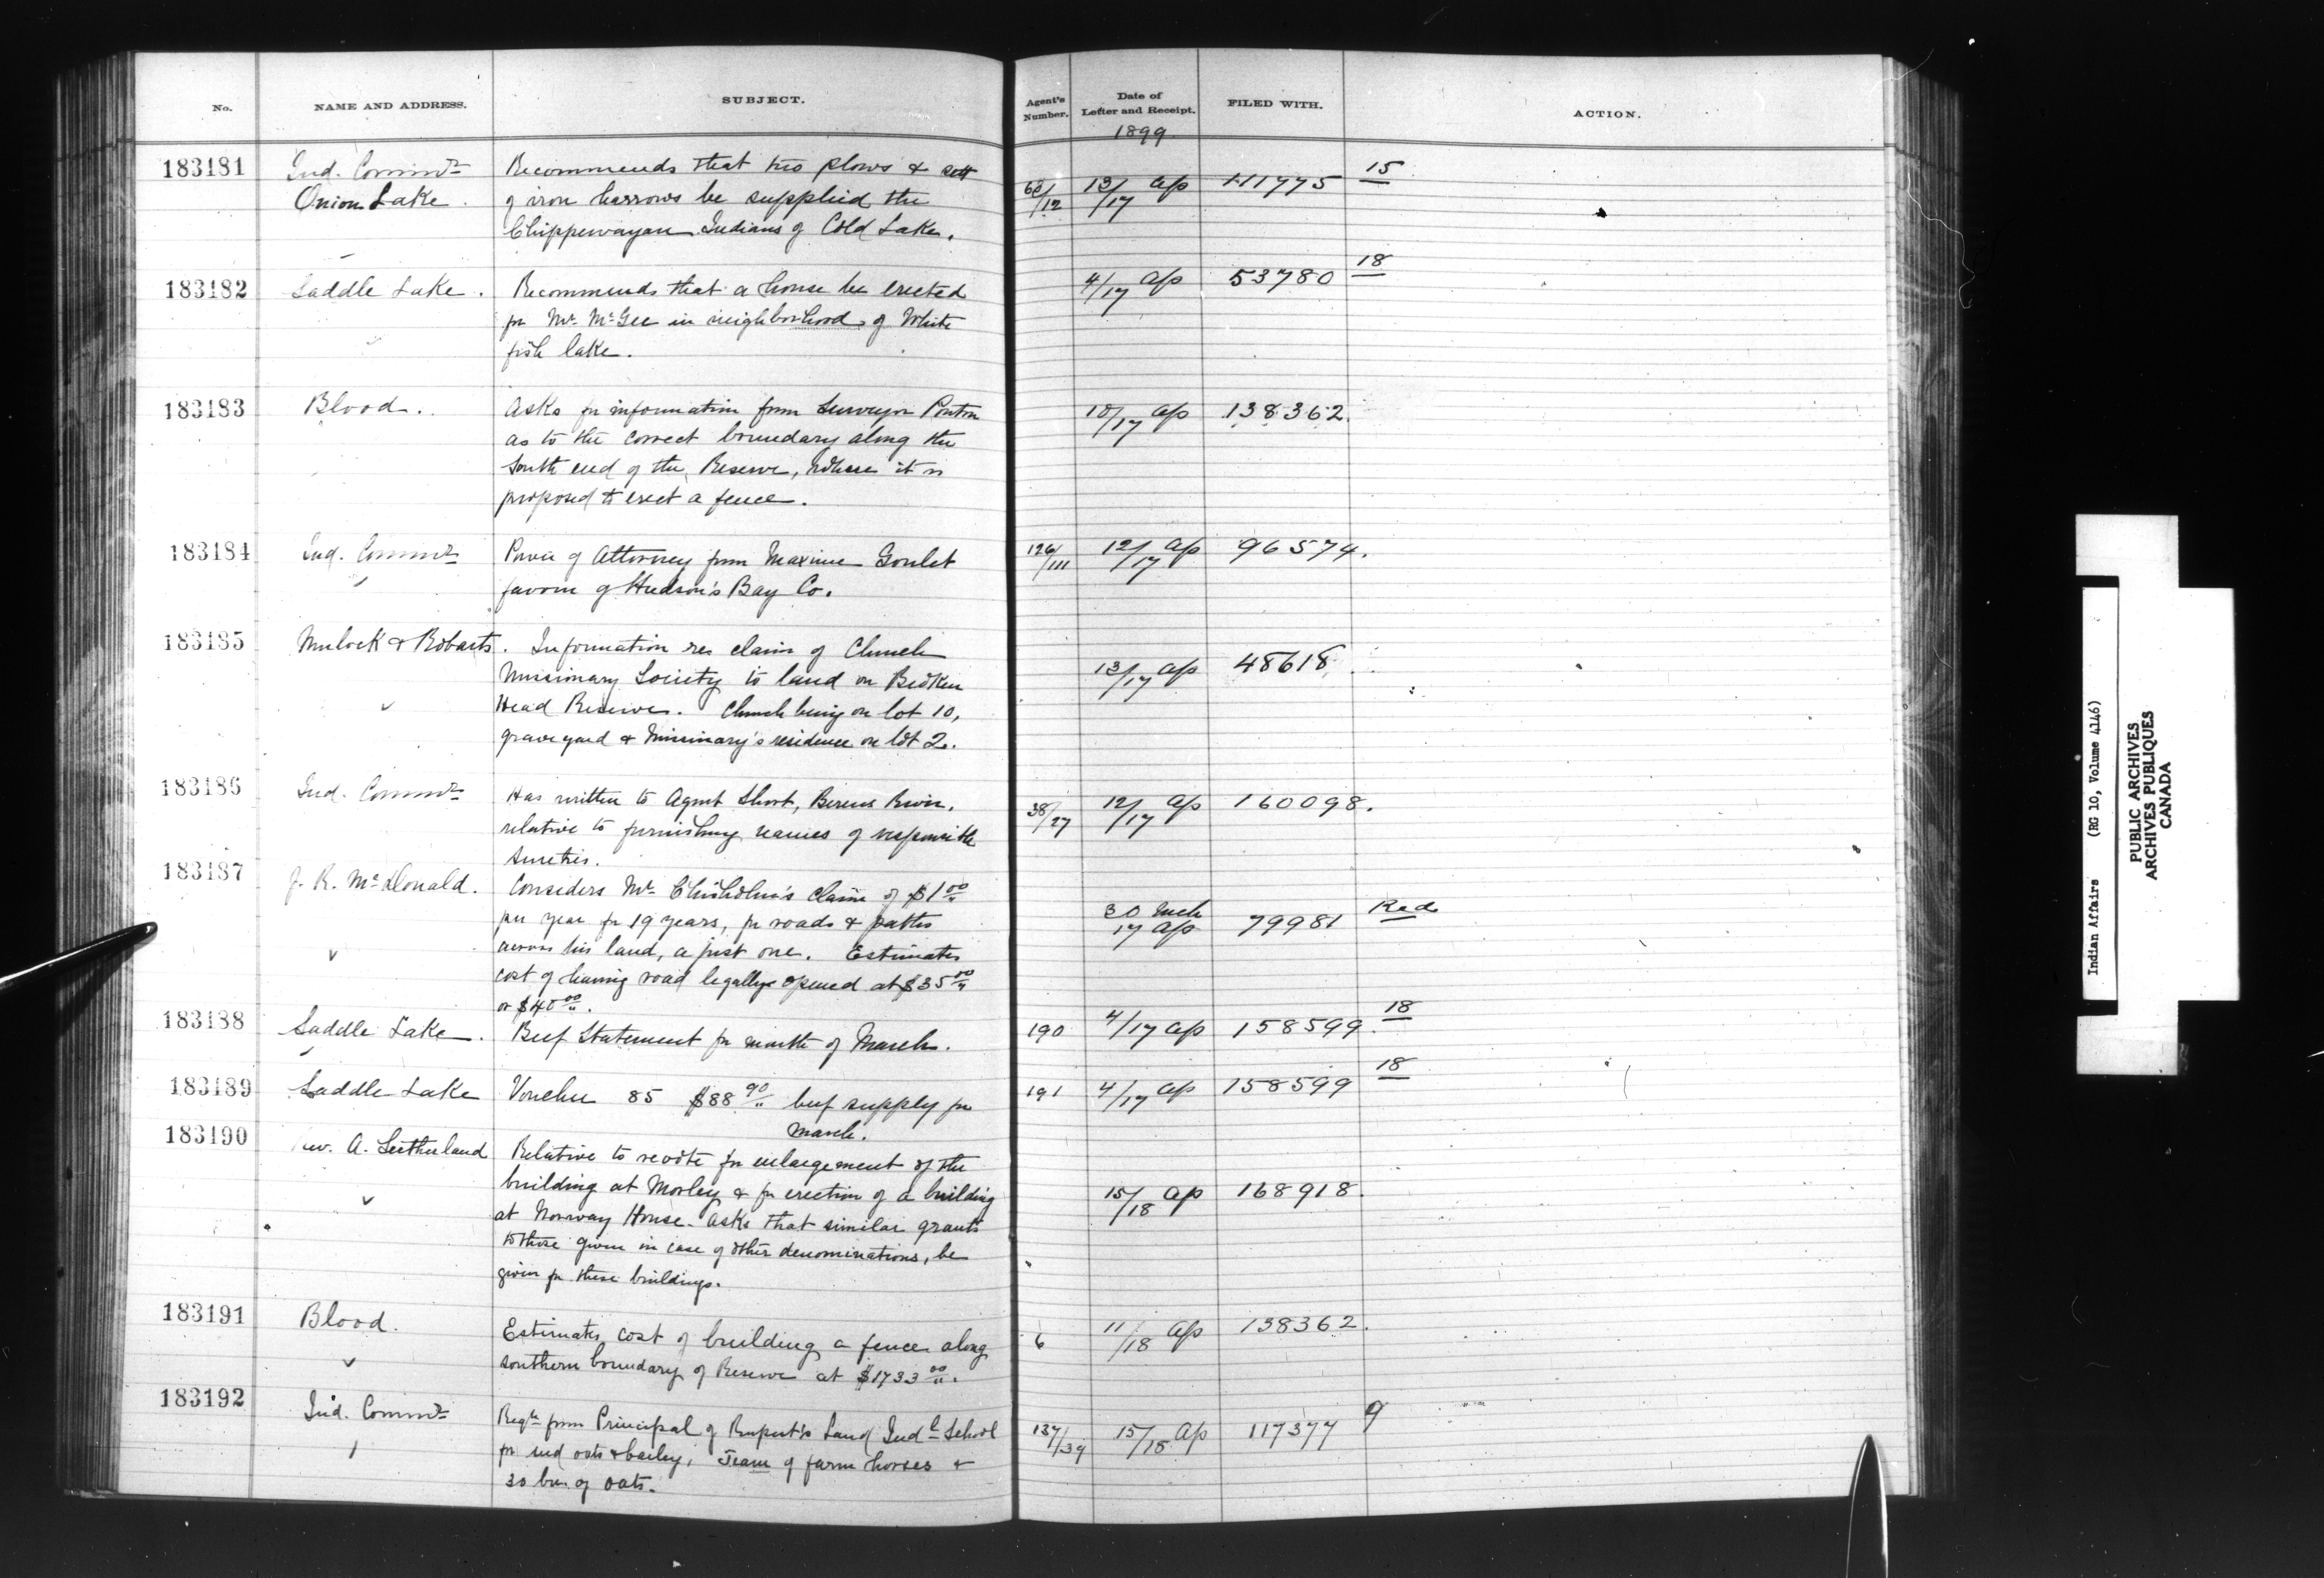 No. NAME AND ADDRESS. SUBJECT. Agent's Number. Date of Letter and Receipt. FILED WITH. ACTION.
1899
183181 Ind. Commr Recommends that two plows & sett 68/12 13/17 Ap 111775 15
Onion Lake. of iron harrows be supplied the
Chippewayan Indians of Cold Lake.
183182 Saddle Lake. Recommends that a house be erected 4/17 Ap 53780 18
for Mr. McGee in neighborhood of White
fish lake.
183183 Blood. Asks for information from Surveyor Ponton 10/17 Ap 138362.
as to the correct boundary along the
South end of the Reserve, where it is
proposed to erect a fence.
183184 Ind. Commr Power of Attorney from Maxime Goulet 126/111 12/17 Ap 96574.
favour of Hudson's Bay Co.
183185 Mulock & Robarts. Information re claim of Church 13/17 Ap 48618
Missionary Society to land on Broken
Head Reserve. Church being on lot 10,
graveyard & Missinary's residence on lot 2.
183186 Ind. Commr Has written to Agent Short, Berens River, 38/27 12/17 Ap 160098.
relative to furnishing names of responsible
sureties.
183187 J. R. McDonald. Considers Mr. Chisholm's claim of $1 00
per year for 19 years, for roads & paths 30 Mch 17 Ap 79981 Red
across his land, a just one. Estimates
cost of having road legally opened at $35 00
or $40 00.
183188 Saddle Lake. Beef Statement for month of March. 190 4/17 Ap 158599. 18
183189 Saddle Lake Voucher 85 $88 90 beef supply for 191 4/17 Ap 158599 18
March.
183190 Rev. A. Sutherland Relative to revote for enlargement of the
building at Morley & for erection of a building 15/18 Ap 168918.
at Norway House. Asks that similar grants
to those given in case of other denominations, be
given for these buildings.
183191 Blood. Estimates cost of building a fence along 6 11/18 Ap 138362.
southern boundary of Reserve at $1733 00.
183192 Ind. Commr Reqn from Principal of Rupert's Land Indl School 137/39 15/18 Ap 117377 9
for seed oats & barley, Team of farm horses &
30 bus. of oats.
Indian Affairs (RG 10, Volume 4146)
PUBLIC ARCHIVES
ARCHIVES PUBLIQUES
CANADA